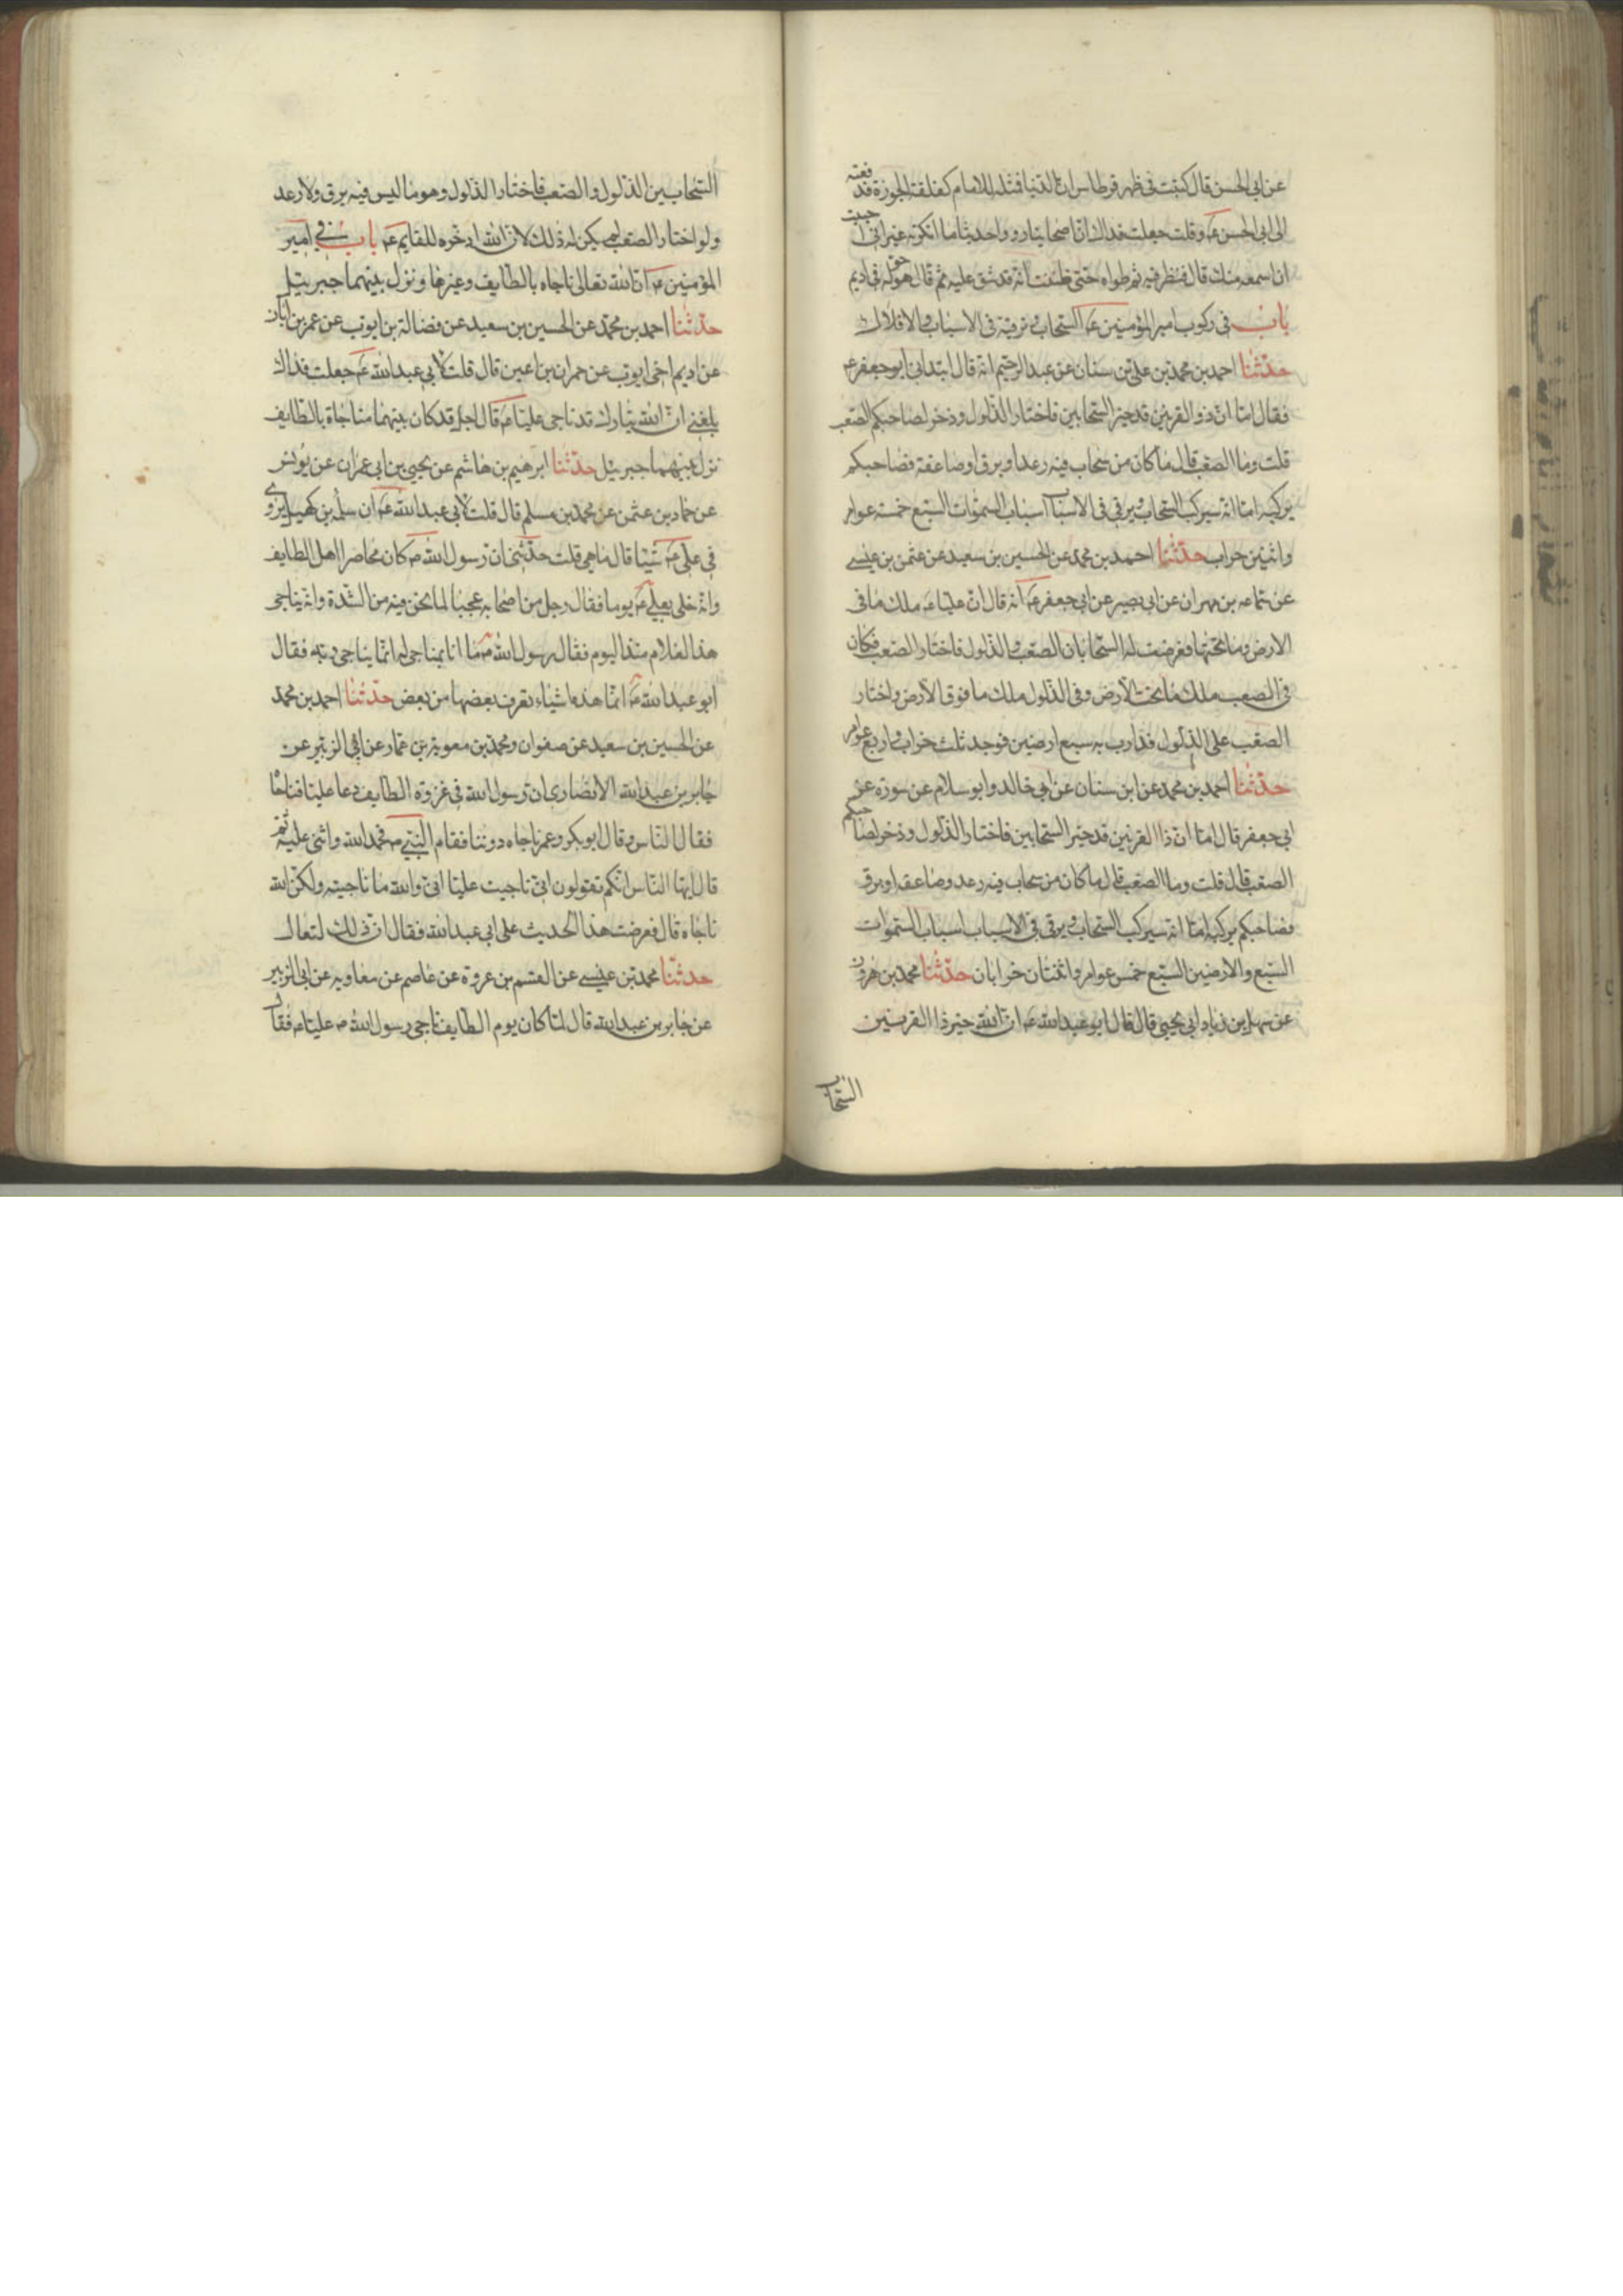 عن ابي الحسن قال كتبت في ظهر قرطاس ان الدنيا ممثلة للامام كفلقة الجوزة فدفعته
الى ابي الحسن عم وقلت جعلت فداك ان اصحابنا رووا حديثا ما انكرته غير اني احببت
ان اسمعه منك قال فنظر فيه ثم طواه حتى ظننت انه قد شق عليه ثم قال هو حق فحوله في اديم
باب في ركوب امير المؤمنين عم السحاب وترقيه في الاسباب والافلاك
حدثنا احمد بن محمد بن علي بن سنان عن عبد الرحيم انه قال ابتداني ابو جعفر عم
فقال اما ان ذو القرنين قد خير السحابين فاختار الذلول وذخر لصاحبكم الصعب
قلت وما الصعب قال ما كان من سحاب فيه رعد او برق او صاعقة فصاحبكم
يركبه اما انه سيركب السحاب ويرقي في الاسباب اسباب السموات السبع خمسة عوامر
واثنين خراب حدثنا احمد بن محمد عن الحسين بن سعيد عن عثمن بن عيسى
عن سماعه بن مهران عن ابي بصير عن ابي جعفر عم انه قال ان عليا عم ملك ما في
الارض وما تحتها فعرضت له السحابان الصعب والذلول فاختار الصعب فكان
في الصعب ملك ما تحت الارض وفي الذلول ملك ما فوق الارض واختار
الصعب على الذلول فدارت به سبع ارضين فوجد ثلث خراب واربع عوامر
حدثنا احمد بن محمد عن ابن سنان عن ابي خالد وابو سلام عن سورة عن
ابي جعفر قال اما ان ذا القرنين قد خير السحابين فاختار الذلول وذخر لصاحبكم
الصعب قال قلت وما الصعب قال ما كان من سحاب فيه رعد وصاعقه او برق
فصاحبكم يركبه اما انه سيركب السحاب ويرقى في الاسباب اسباب السموات
السبع والارضين السبع خمس عوامر واثنتان خرابان حدثنا محمد بن هرون
عن سهل بن زياد ابي يحيى قال قال ابو عبد الله عم ان الله خير ذا القرنين
السحاب
السحابين الذلول والصعب فاختار الذلول وهو ما ليس فيه برق ولا رعد
ولو اختار الصعب لم يكن له ذلك لان الله ادخره للقايم عم باب في امير
المؤمنين عم ان الله تعالى ناجاه بالطايف وغيرها ونزل بينهما جبرييل
حدثنا احمد بن محمد عن الحسين بن سعيد عن فضالة بن ايوب عن عمر بن ابان
عن اديم اخي ايوب عن حمران بن اعين قال قلت لابي عبد الله عم جعلت فداك
بلغني ان الله تبارك قد ناجى عليا عم قال اجل قد كان بينهما مناجاة بالطايف
نزل بينهما جبرييل حدثنا ابرهيم بن هاشم عن يحيى بن ابي عمران عن يونس
عن حماد بن عثمن عن محمد بن مسلم قال قلت لابي عبد الله عم ان سلمه بن كهيل يروي
في علي عم شيئا قال ما هي قلت حدثني ان رسول الله ص كان محاصرا اهل الطايف
وانه خلى بعلي عم يوما فقال رجل من اصحابه عجبا لما نحن فيه من الشدة وانه يناجي
هذا الغلام منذ اليوم فقال رسول الله ص ما انا بمناجي له انما يناجي ربه فقال
ابو عبد الله عم انما هذه اشياء تعرف بعضها من بعض حدثنا احمد بن محمد
عن الحسين بن سعيد عن صفوان ومحمد بن معوية بن عمار عن ابي الزبير عن
جابر بن عبد الله الانصاري ان رسول الله في غزوة الطايف دعا عليا فناجاه
فقال الناس وقال ابو بكر وعمر ناجاه دوننا فقام النبي ص فحمد الله واثنى عليه ثم
قال ايها الناس انكم تقولون اني ناجيت عليا اني والله ما ناجيته ولكن الله
ناجاه قال فعرضت هذا الحديث على ابي عبد الله فقال ان ذلك لتعال
حدثنا محمد بن عيسى عن القسم بن عروة عن عاصم عن معاويه عن ابي الزبير
عن جابر بن عبد الله قال لما كان يوم الطايف ناجى رسول الله ص عليا عم فقال